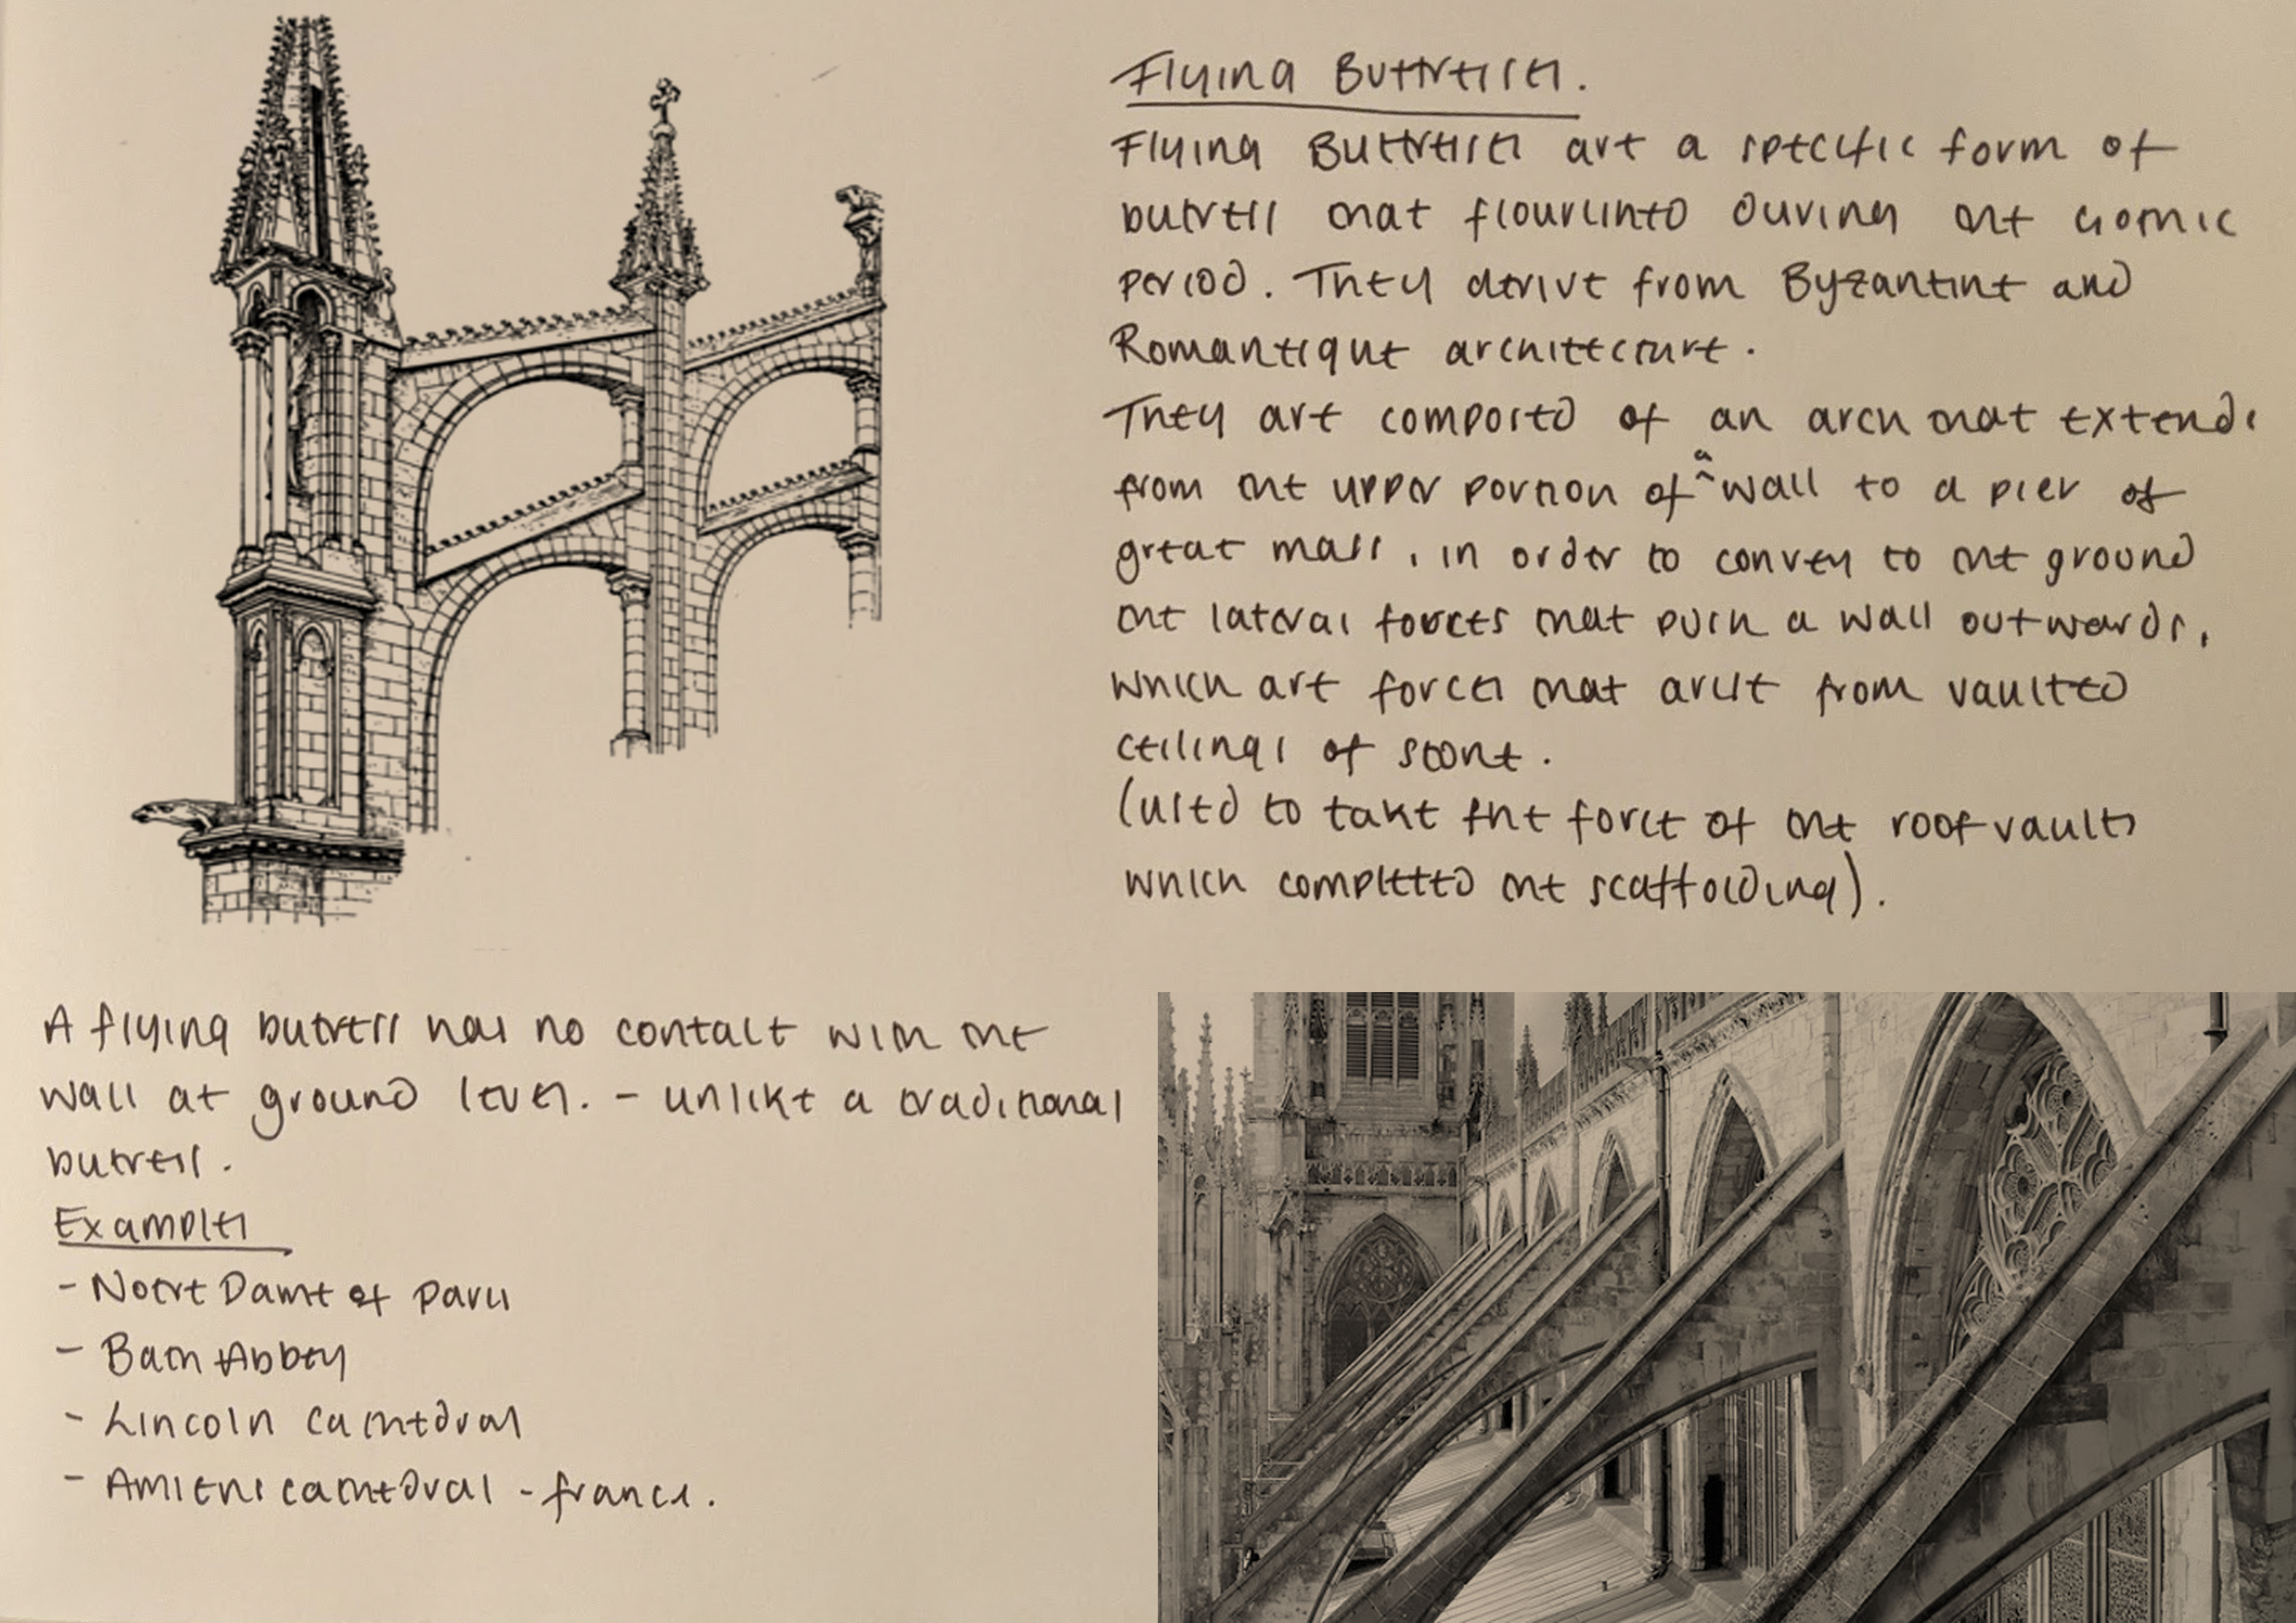 Flying Buttresses.
Flying Buttresses are a specific form of
butress that flourished During the Gothic
period. They derive from Byzantine and
Romanesque architecture.
They are composed of an arch that extends
from the upper portion of a wall to a pier of
great mass, in order to convey to the ground
the lateral forces that push a wall outwards,
which are forces that arise from vaulted
ceilings of stone.
(used to take the force of the roof vaults
which completed the scaffolding).
A flying butress has no contact with the
wall at ground level. - unlike a traditional
butress.
Examples
- Notre Dame of Paris
- Bath Abbey
- Lincoln Cathedral
- Amiens cathedral - france.